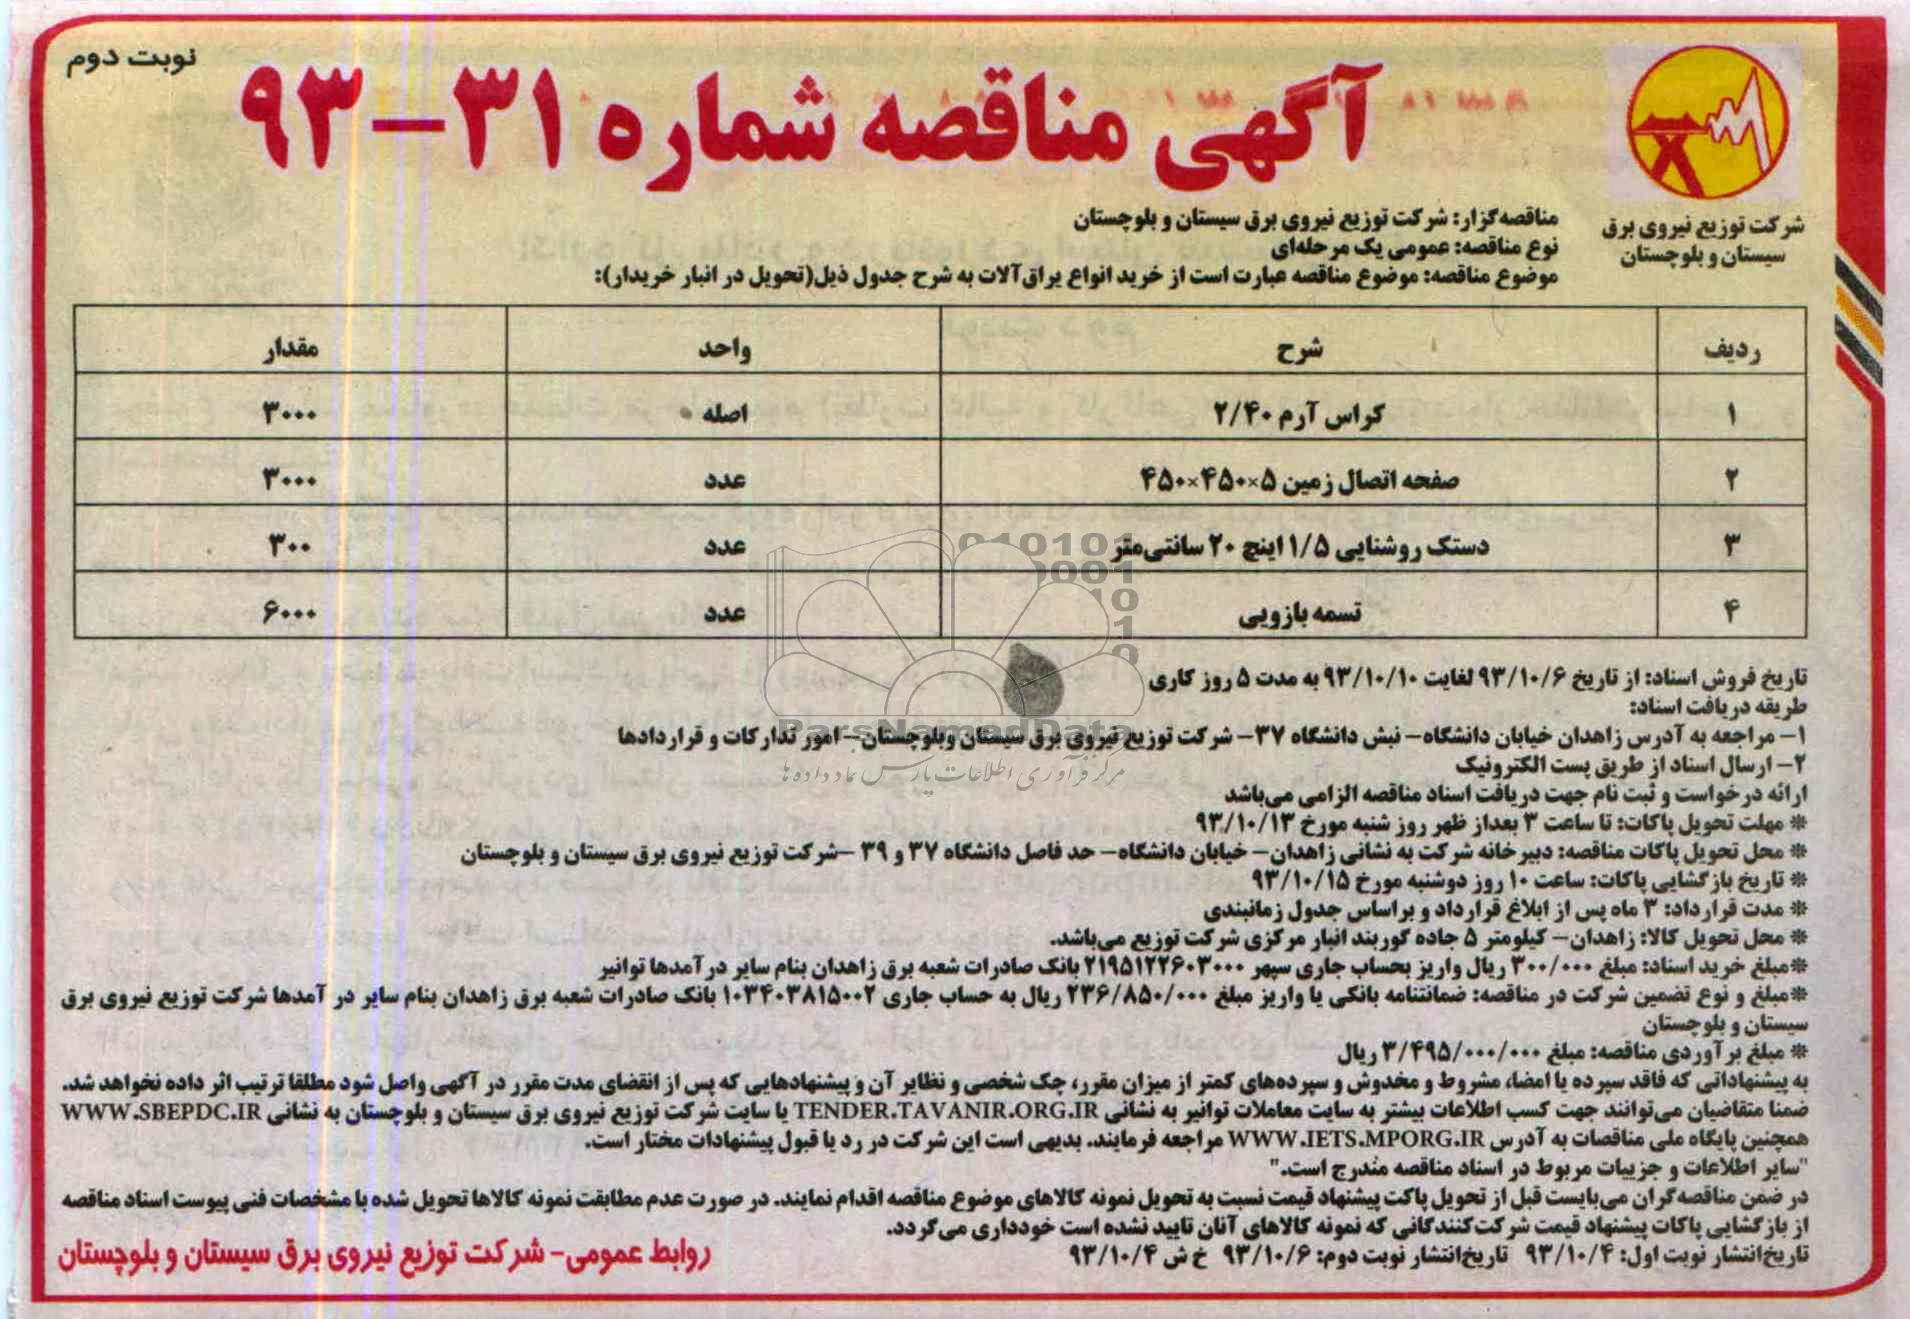 نوبت دوم
آگهی مناقصه شماره ۳۱-۹۳
شرکت توزیع نیروی برق
سیستان و بلوچستان
مناقصه‌گزار: شرکت توزیع نیروی برق سیستان و بلوچستان
نوع مناقصه: عمومی یک مرحله‌ای
موضوع مناقصه: موضوع مناقصه عبارت است از خرید انواع یراق‌آلات به شرح جدول ذیل(تحویل در انبار خریدار):
ردیف شرح واحد مقدار
۱ کراس آرم ۲/۴۰ اصله ۳۰۰۰
۲ صفحه اتصال زمین ۵×۴۵۰×۴۵۰ عدد ۳۰۰۰
۳ دستک روشنایی ۱/۵ اینچ ۲۰ سانتی‌متر عدد ۳۰۰
۴ تسمه بازویی عدد ۶۰۰۰
تاریخ فروش اسناد: از تاریخ ۹۳/۱۰/۶ لغایت ۹۳/۱۰/۱۰ به مدت ۵ روز کاری
طریقه دریافت اسناد:
۱- مراجعه به آدرس زاهدان خیابان دانشگاه- نبش دانشگاه ۳۷- شرکت توزیع نیروی برق سیستان وبلوچستان- امور تدارکات و قراردادها
۲- ارسال اسناد از طریق پست الکترونیک
ارائه درخواست و ثبت نام جهت دریافت اسناد مناقصه الزامی می‌باشد
* مهلت تحویل پاکات: تا ساعت ۳ بعداز ظهر روز شنبه مورخ ۹۳/۱۰/۱۳
* محل تحویل پاکات مناقصه: دبیرخانه شرکت به نشانی زاهدان- خیابان دانشگاه- حد فاصل دانشگاه ۳۷ و ۳۹ -شرکت توزیع نیروی برق سیستان و بلوچستان
* تاریخ بازگشایی پاکات: ساعت ۱۰ روز دوشنبه مورخ ۹۳/۱۰/۱۵
* مدت قرارداد: ۳ ماه پس از ابلاغ قرارداد و براساس جدول زمانبندی
* محل تحویل کالا: زاهدان- کیلومتر ۵ جاده گوربند انبار مرکزی شرکت توزیع می‌باشد.
*مبلغ خرید اسناد: مبلغ ۳۰۰/۰۰۰ ریال واریز بحساب جاری سپهر ۲۱۹۵۱۲۲۶۰۳۰۰۰ بانک صادرات شعبه برق زاهدان بنام سایر درآمدها توانیر
*مبلغ و نوع تضمین شرکت در مناقصه: ضمانتنامه بانکی یا واریز مبلغ ۲۳۶/۸۵۰/۰۰۰ ریال به حساب جاری ۱۰۳۴۰۳۸۱۵۰۰۲ بانک صادرات شعبه برق زاهدان بنام سایر در آمدها شرکت توزیع نیروی برق
سیستان و بلوچستان
* مبلغ برآوردی مناقصه: مبلغ ۳/۴۹۵/۰۰۰/۰۰۰ ریال
به پیشنهاداتی که فاقد سپرده یا امضا، مشروط و مخدوش و سپرده‌های کمتر از میزان مقرر، چک شخصی و نظایر آن و پیشنهادهایی که پس از انقضای مدت مقرر در آگهی واصل شود مطلقا ترتیب اثر داده نخواهد شد.
ضمنا متقاضیان می‌توانند جهت کسب اطلاعات بیشتر به سایت معاملات توانیر به نشانی TENDER.TAVANIR.ORG.IR یا سایت شرکت توزیع نیروی برق سیستان و بلوچستان به نشانی WWW.SBEPDC.IR
همچنین پایگاه ملی مناقصات به آدرس WWW.IETS.MPORG.IR مراجعه فرمایند. بدیهی است این شرکت در رد یا قبول پیشنهادات مختار است.
"سایر اطلاعات و جزییات مربوط در اسناد مناقصه مندرج است."
در ضمن مناقصه‌گران می‌بایست قبل از تحویل پاکت پیشنهاد قیمت نسبت به تحویل نمونه کالاهای موضوع مناقصه اقدام نمایند. در صورت عدم مطابقت نمونه کالاها تحویل شده با مشخصات فنی پیوست اسناد مناقصه
از بازگشایی پاکات پیشنهاد قیمت شرکت‌کنندگانی که نمونه کالاهای آنان تایید نشده است خودداری می‌گردد.
تاریخ‌انتشار نوبت اول: ۹۳/۱۰/۴ تاریخ‌انتشار نوبت دوم: ۹۳/۱۰/۶ خ ش ۹۳/۱۰/۴
روابط عمومی- شرکت توزیع نیروی برق سیستان و بلوچستان
ParsNamadData
مرکز فرآوری اطلاعات پارس نماد داده ها